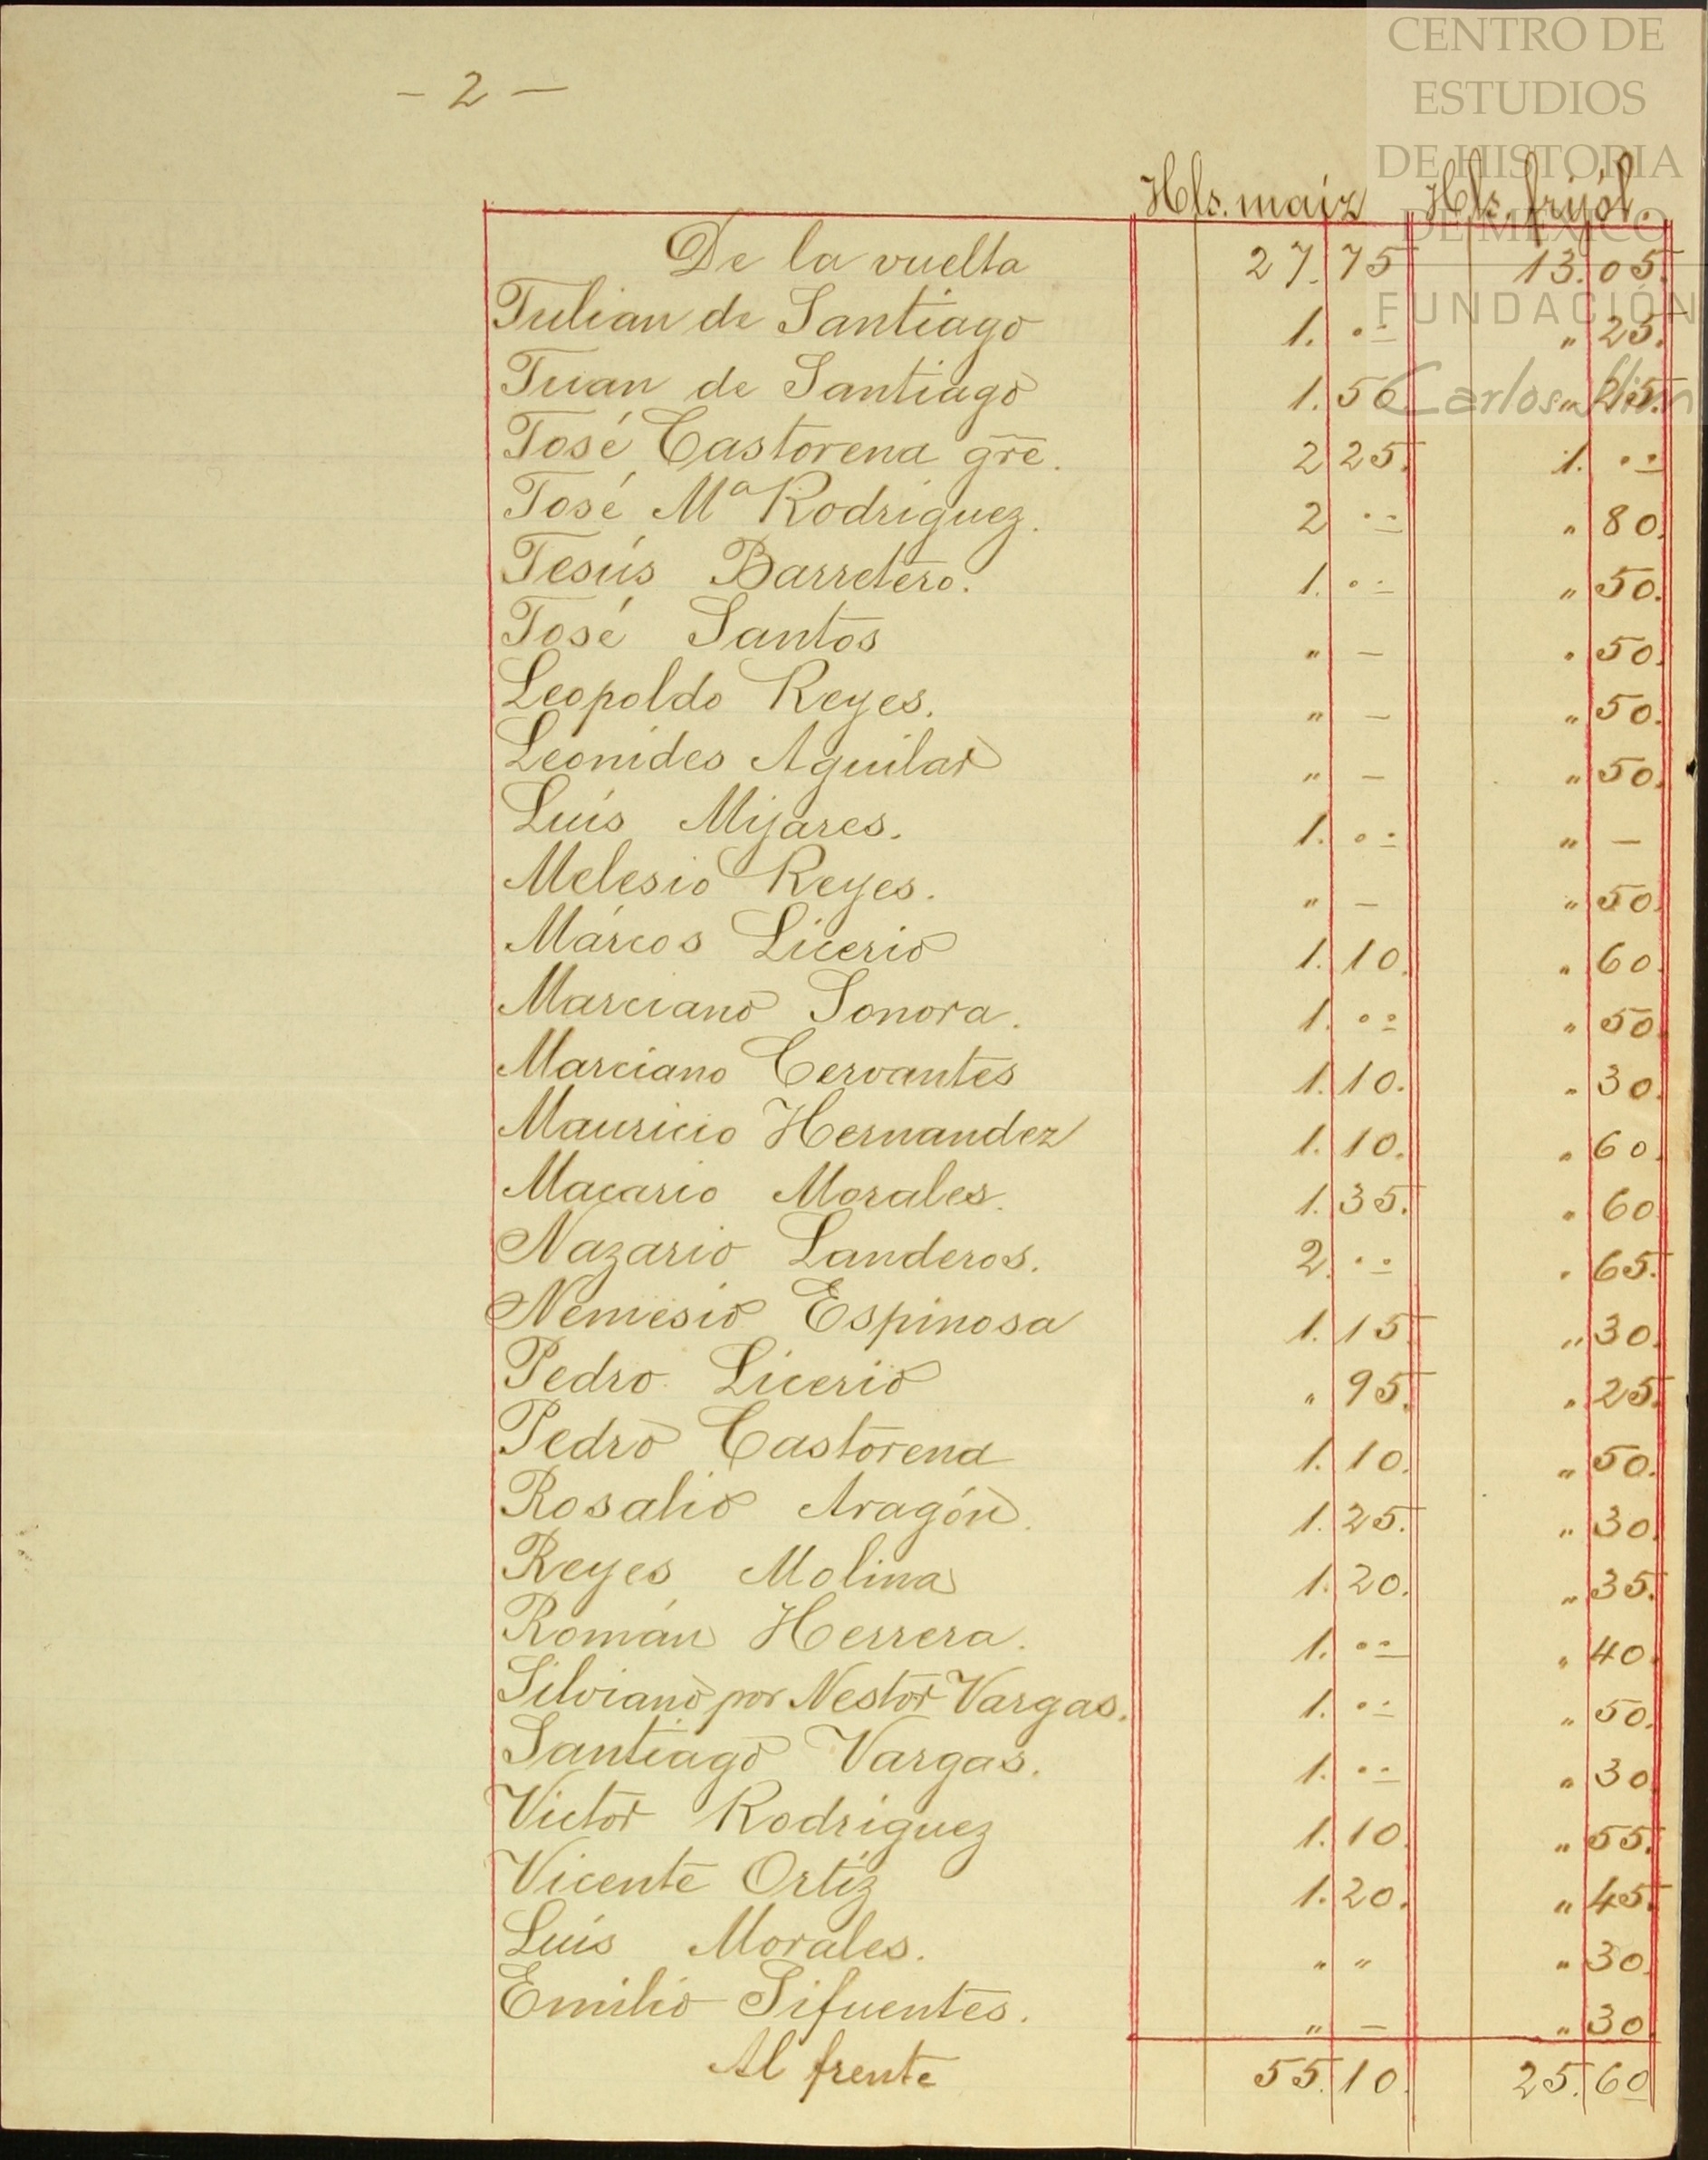 CENTRO DE
ESTUDIOS
DE HISTORIA
DE MÉXICO
FUNDACIÓN
Carlos Slim
- 2 -
Hls. maíz Hls. frijól.
De la vuelta 27. 75 13. 05.
Julian de Santiago 1. .. " 25.
Juan de Santiago 1. 50 " 25.
José Castorena gre. 2 25. 1. ..
José Ma Rodriguez. 2 .. " 80.
Jesús Barretero. 1. .. " 50.
José Santos " — " 50.
Leopoldo Reyes. " — " 50.
Leonides Aguilar " — " 50.
Luís Mijares. 1. .. " —
Melesio Reyes. " — " 50.
Márcos Licerio 1. 10. " 60.
Marciano Sonora. 1. .. " 50.
Marciano Cervantes 1. 10. " 30.
Mauricio Hernandez 1. 10. " 60.
Macario Morales. 1. 35. " 60
Nazario Landeros. 2. .. " 65.
Nemesio Espinosa 1. 15. " 30.
Pedro Licerio " 95. " 25.
Pedro Castorena 1. 10. " 50.
Rosalio Aragón. 1. 25. " 30.
Reyes Molina 1. 20. " 35.
Román Herrera. 1. .. " 40.
Silviano por Nestor Vargas. 1. .. " 50.
Santiago Vargas. 1. .. " 30.
Victor Rodriguez 1. 10. " 55.
Vicente Ortíz 1. 20. " 45.
Luis Morales. " " " 30.
Emilio Sifuentes. " — " 30.
Al frente 55. 10. 25. 60